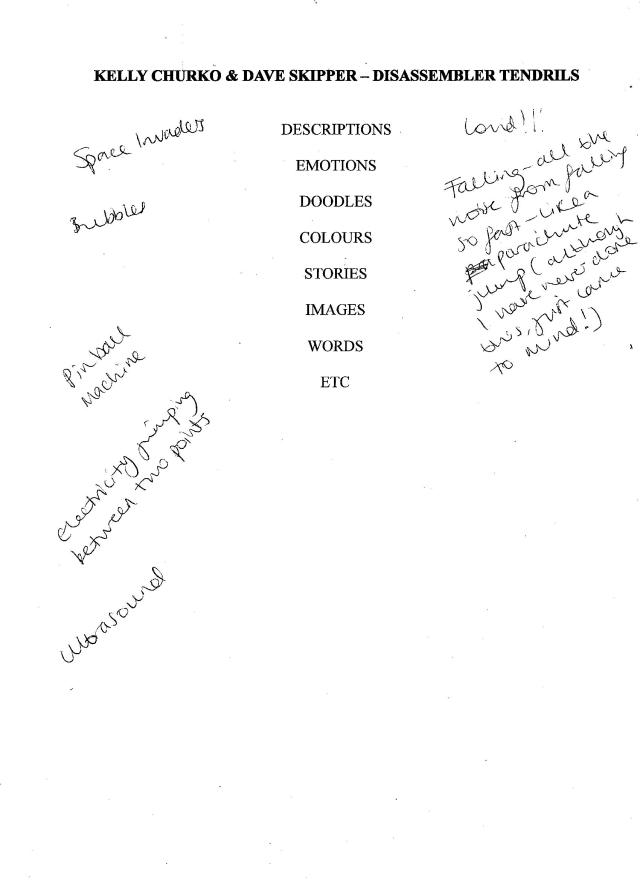 KELLY CHURKO & DAVE SKIPPER – DISASSEMBLER TENDRILS
Space Invaders
Bubbles
Pinball
Machine
Electricity jumping
between two points
Ultrasound
DESCRIPTIONS
EMOTIONS
DOODLES
COLOURS
STORIES
IMAGES
WORDS
ETC
Loud!!!
Falling - all the
noise from falling
so fast - like a
parachute
jump (although
I have never done
this, just came
to mind!)